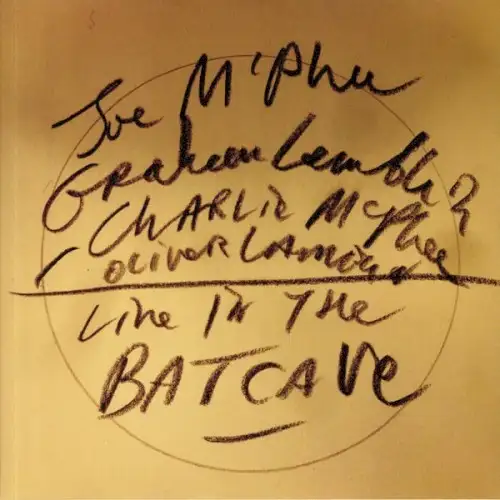 Joe McPhee
Graham Lambkin
CHARLIE McPhee
OLIVER LAMBKIN
Live in THe
BATCAVe